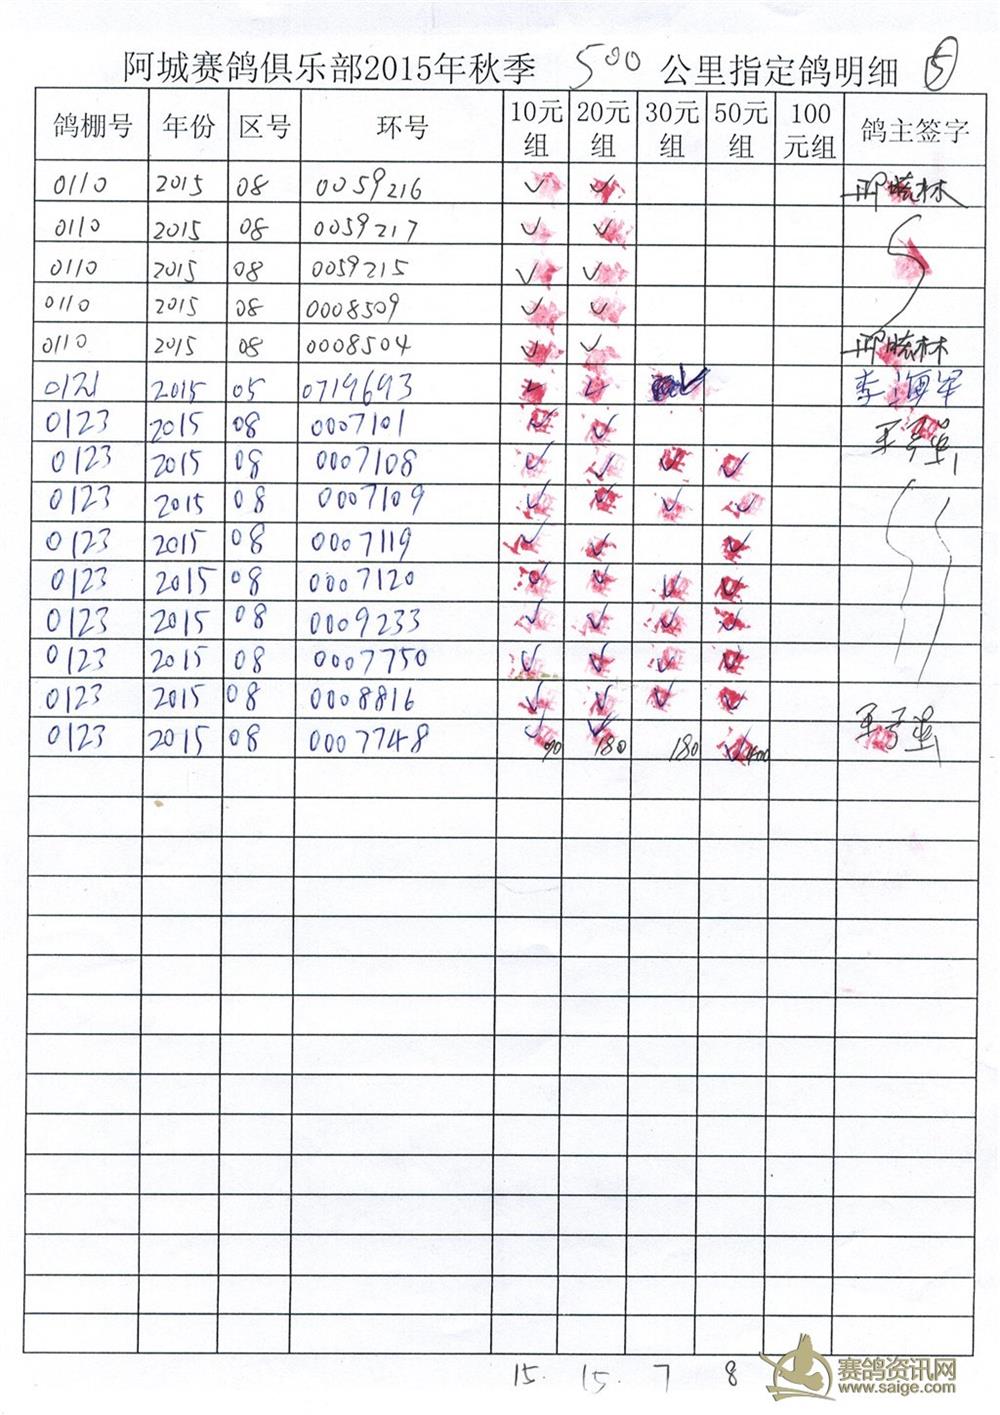 阿城赛鸽俱乐部2015年秋季 500 公里指定鸽明细 ⑤
鸽棚号 年份 区号 环号 10元组 20元组 30元组 50元组 100元组 鸽主签字
0110 2015 08 0059216 ✓ ✓
0110 2015 08 0059217 ✓ ✓
0110 2015 08 0059215 ✓ ✓
0110 2015 08 0008509 ✓ ✓
0110 2015 08 0008504 ✓ ✓
0121 2015 05 0719693 ✓ ✓ ✓ 李海军
0123 2015 08 0007101 ✓ ✓
0123 2015 08 0007108 ✓ ✓ ✓ ✓
0123 2015 08 0007109 ✓ ✓ ✓ ✓
0123 2015 08 0007119 ✓ ✓ ✓
0123 2015 08 0007120 ✓ ✓ ✓ ✓
0123 2015 08 0009233 ✓ ✓ ✓ ✓
0123 2015 08 0007750 ✓ ✓ ✓ ✓
0123 2015 08 0008816 ✓ ✓ ✓ ✓
0123 2015 08 0007748 ✓ 90 ✓ 180 180 ✓ 400
15. 15. 7 8
赛鸽资讯网
www.saige.com